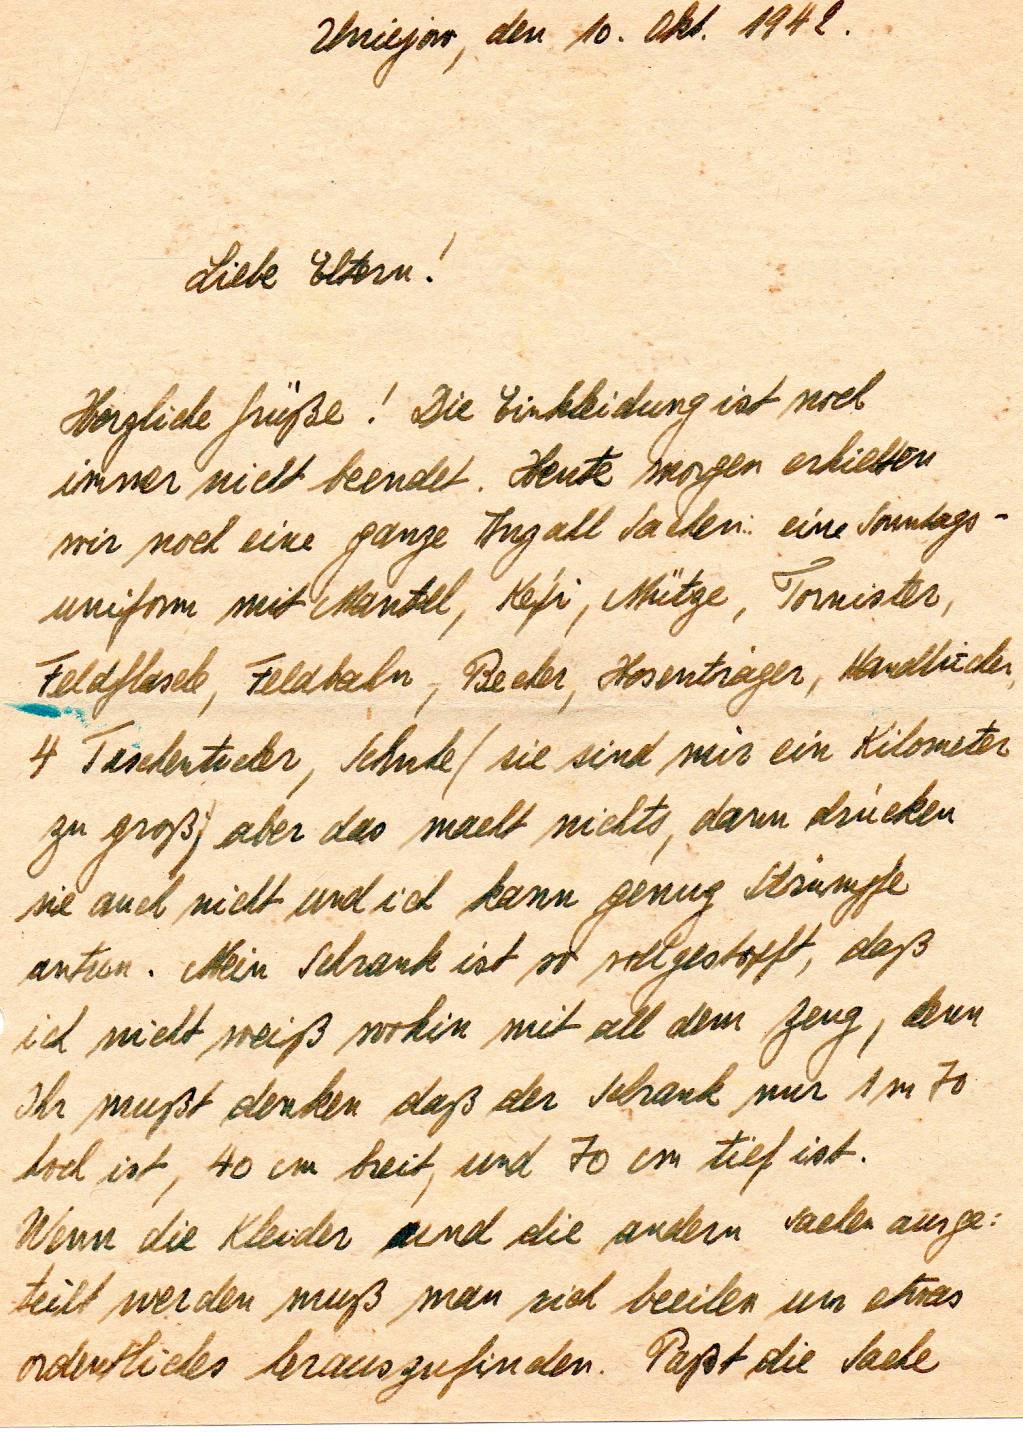 Uniejow, den 10. Okt. 1942.
Liebe Eltern!
Herzliche Grüße! Die Einkleidung ist noch
immer nicht beendet. Heute morgen erhielten
wir noch eine ganze Anzahl Sachen: eine Sonntags-
uniform mit Mantel, Képi, Mütze, Tornister,
Feldflasche, Feldbahn, Becher, Hosenträger, Handtücher,
4 Taschentücher, Schuhe (sie sind mir ein Kilometer
zu groß) aber das macht nichts, dann drücken
sie auch nicht und ich kann genug Strümpfe
antun. Mein Schrank ist so vollgestopft, daß
ich nicht weiß wohin mit all dem Zeug, denn
Ihr mußt denken daß der Schrank nur 1 m 70
hoch ist, 40 cm breit, und 70 cm tief ist.
Wenn die Kleider und die andern Sachen ausge:
teilt werden muß man sich beeilen um etwas
ordentliches herauszufinden. Paßt die Sache